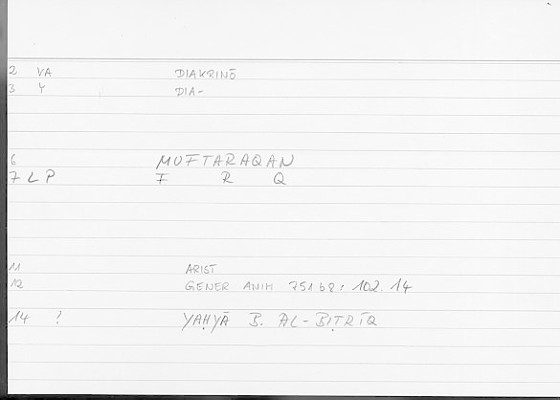 2 VA DIAKRINŌ
3 Y DIA-
6 MUFTARAQAN
7 L P F R Q
11 ARIST
12 GENER ANIM 751b8: 102.14
14 ? YAḤYĀ B. AL-BIṬRĪQ